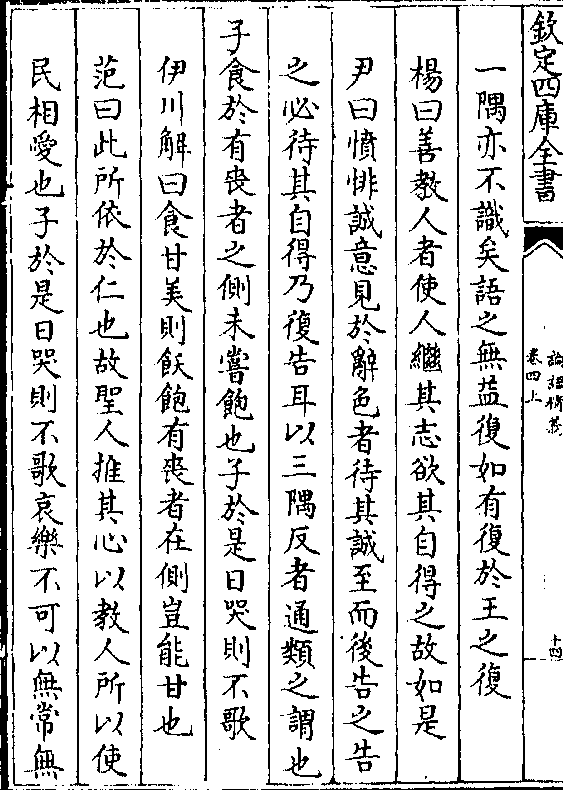 欽定四庫全書
論語精義
卷四上
十四
一隅亦不識矣語之無益復如有復於王之復
楊曰善教人者使人繼其志欲其自得之故如是
尹曰憤悱誠意見於辭色者待其誠至而後告之告
之必待其自得乃復告耳以三隅反者通類之謂也
子食於有喪者之側未嘗飽也子於是日哭則不歌
伊川解曰食甘美則飫飽有喪者在側豈能甘也
范曰此所依於仁也故聖人推其心以教人所以使
民相愛也子於是日哭則不歌哀樂不可以無常無